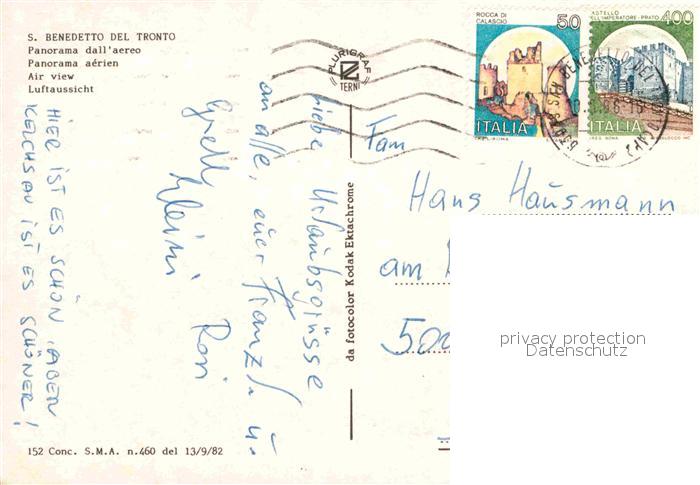 S. BENEDETTO DEL TRONTO
Panorama dall'aereo
Panorama aérien
Air view
Luftaussicht
PLURIGRAF
TERNI
ROCCA DI
CALASCIO
50
ITALIA
CASTELLO
DELL'IMPERATORE-PRATO
400
ITALIA
Liebe Urlaubsgrüsse
an alle, euer Franzl u.
Rosi
HIER IST ES SCHÖN, ABEN
KELCHSAU IST ES SCHÖNER!
da fotocolor Kodak Ektachrome
Fam
Hans Hausmann
am
500
privacy protection
Datenschutz
152 Conc. S.M.A. n.460 del 13/9/82